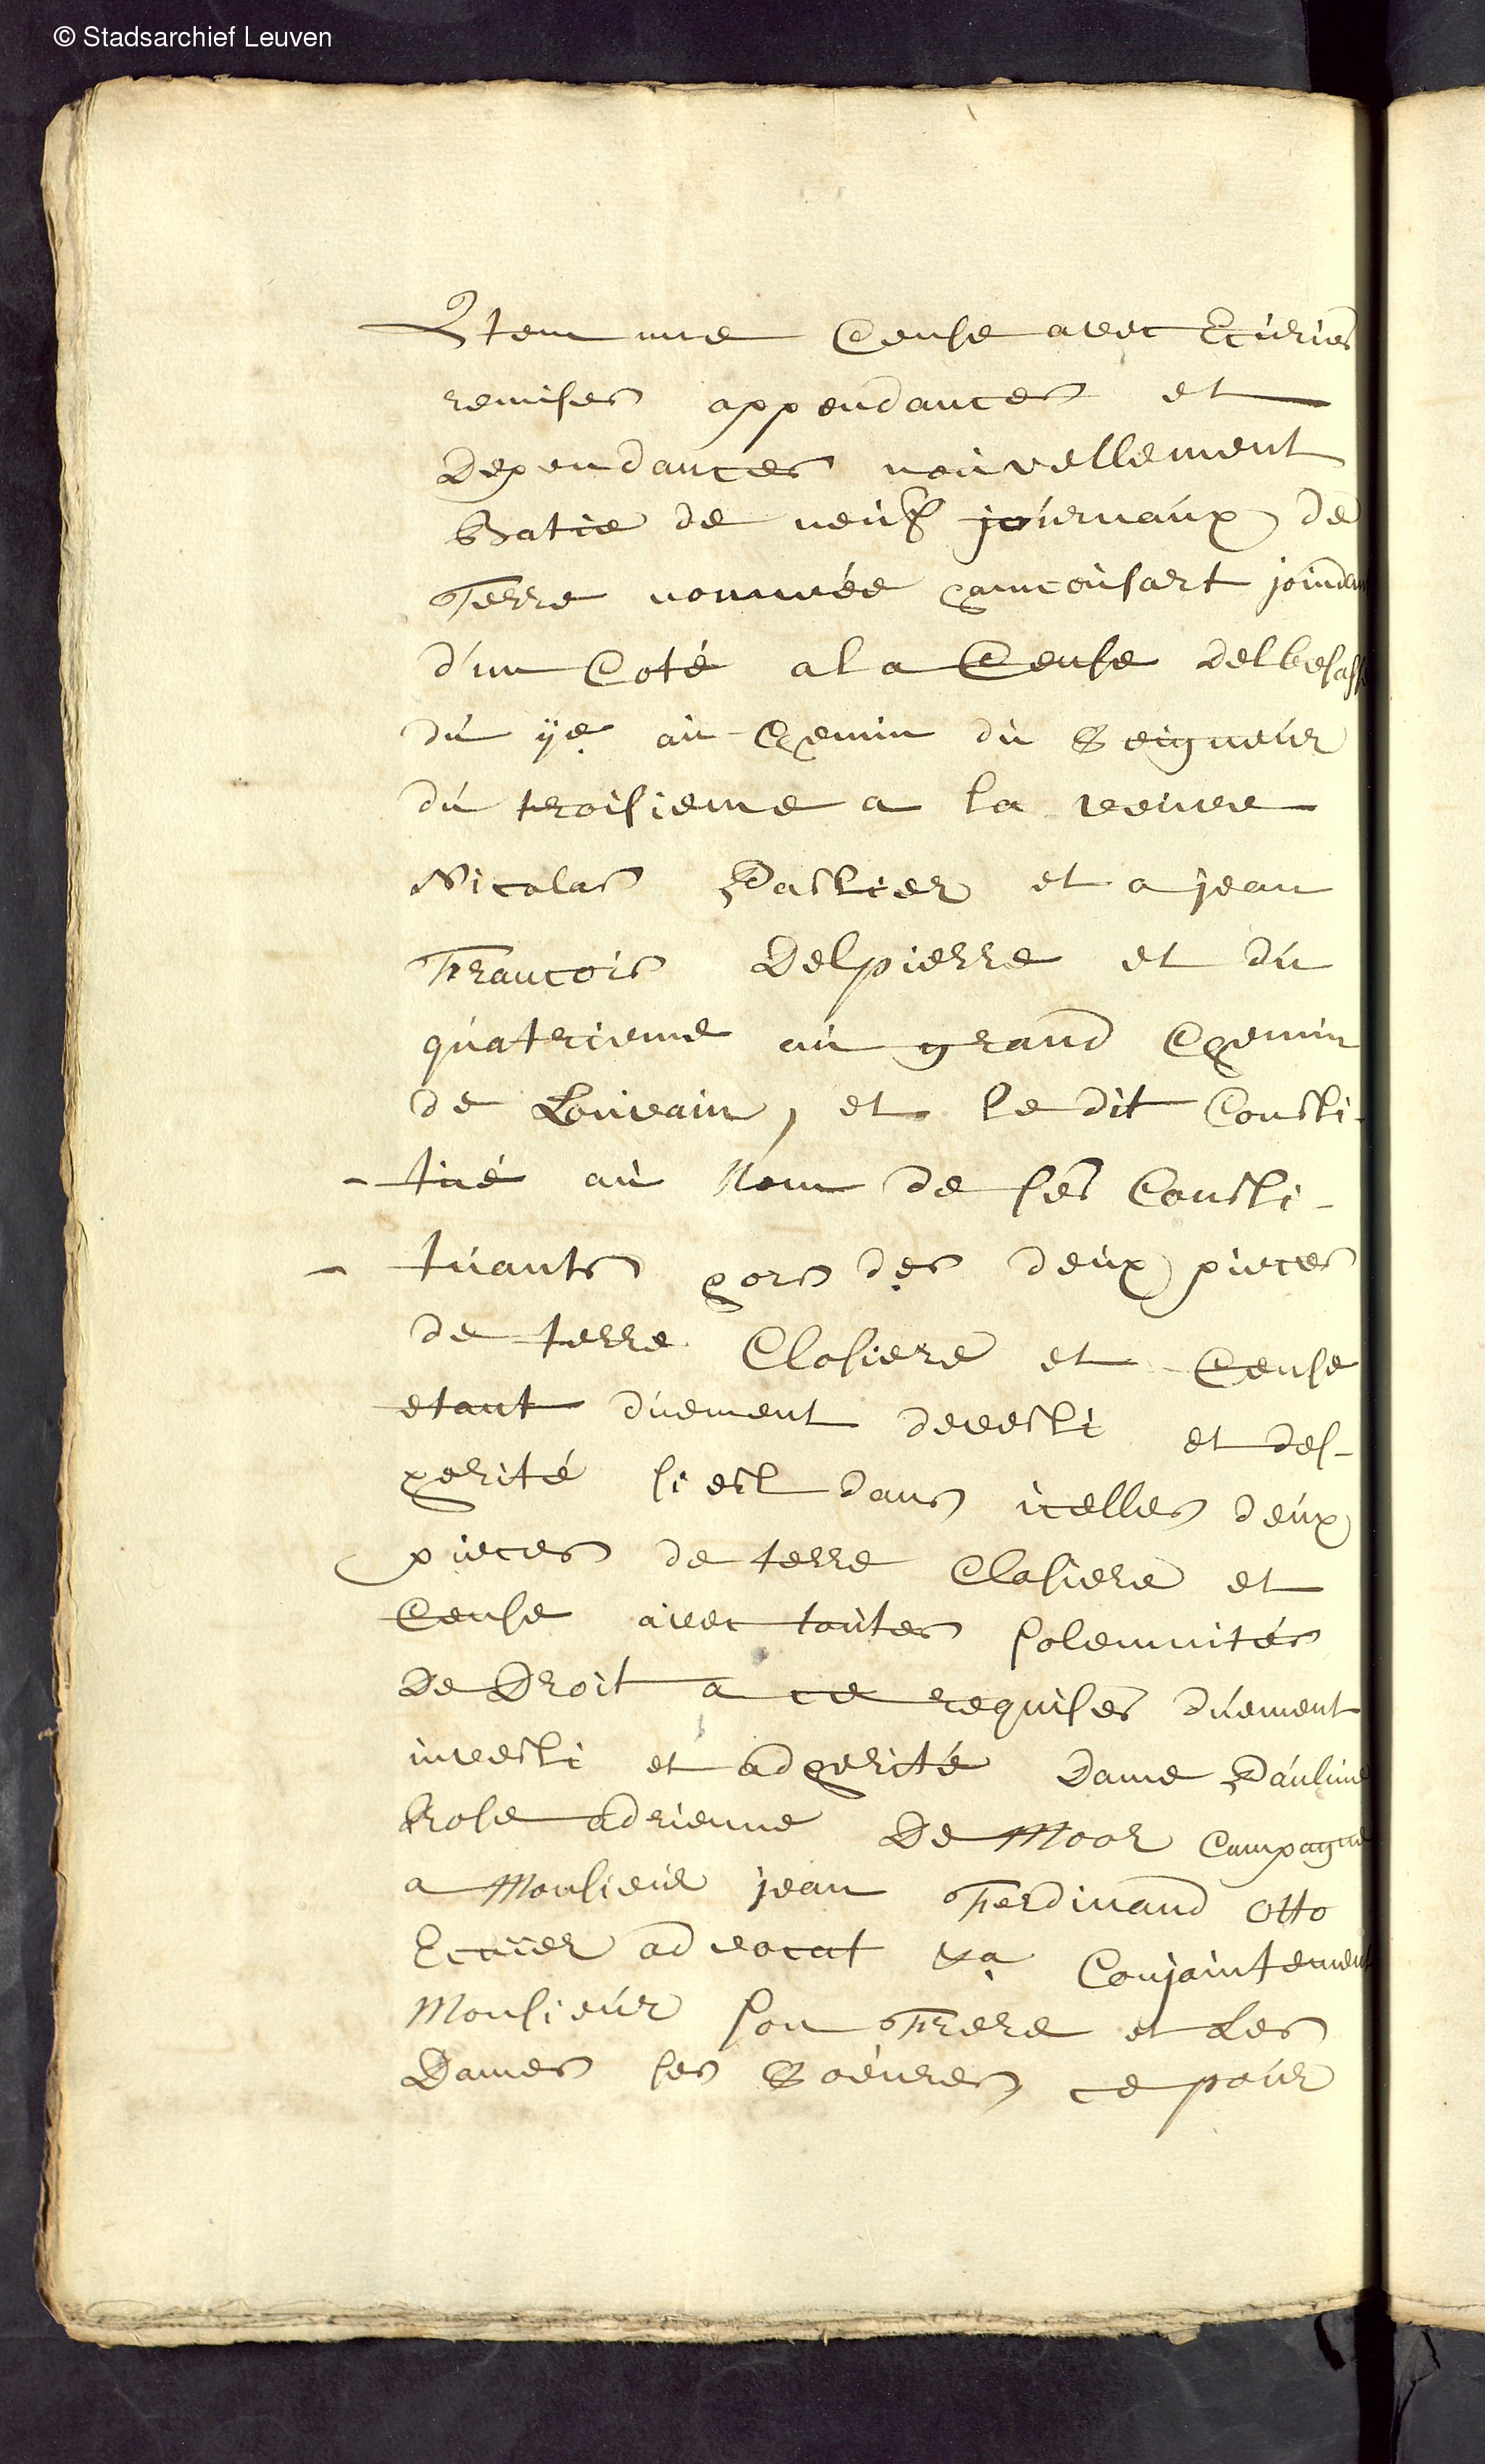 © Stadsarchief Leuven
Item une Cense avec Ecùries
remises appendances et
Dependances noùvellement
Batie de neùf joùrnaùx de
Terre nommée hamconsart joindan
d'un Coté a la Cense delbesasse
dù ije aù Chemin dù Seigneùr
dù troisieme a la veuve
Nicolas Pastier et a jean
Francois Delpierre et dù
quatrieme aù grand Chemin
de Loùvain, et le dit Consti-
-tùé aù Nom de ses Consti-
- tùants hors des deùx pieces
de terre Closiere et Cense
etant dùement devesti et des-
herité s'iest dans icelles deùx
pieces de terre Closiere et
Cense avec toùtes solemnités
De Droit a ce requises dùement
investi et adherité Dame Paùline
Rose adrienne De Moor Compagne
a Monsieùr jean Ferdinand Otto
Ecùïer advocat &a Conjointement
Monsieùr son Frere et Les
Dames ses Soeùres ce poùr